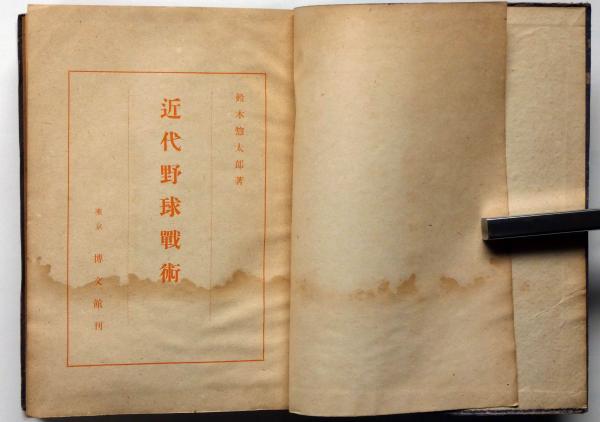 鈴木惣太郎著
近代野球戰術
東京 博文館刊